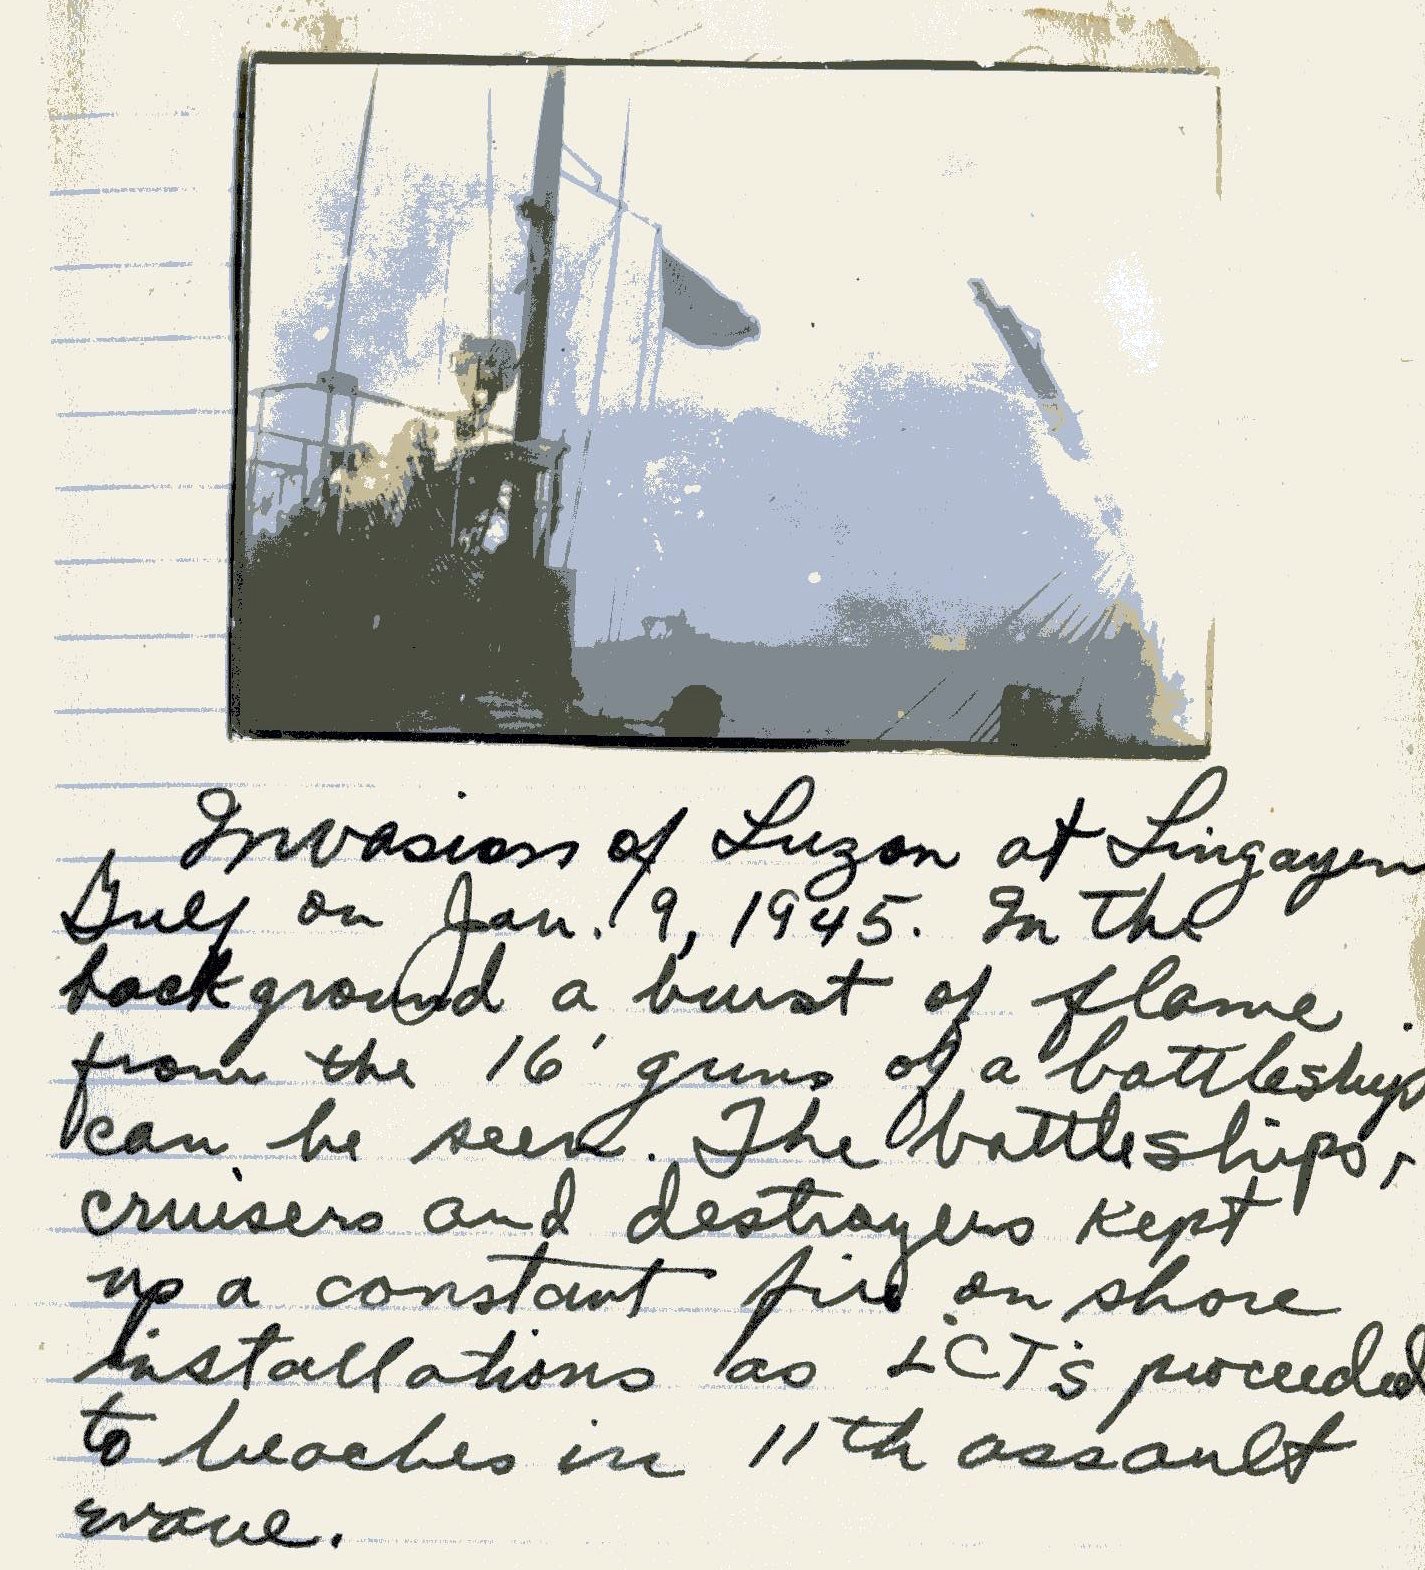 Invasion of Luzon at Lingayen
Gulf on Jan. 9, 1945. In the
background a burst of flame
from the 16' guns of a battleship
can be seen. The battleships,
cruisers and destroyers kept
up a constant fire on shore
installations as LCT's proceeded
to beaches in 11th assault
wave.